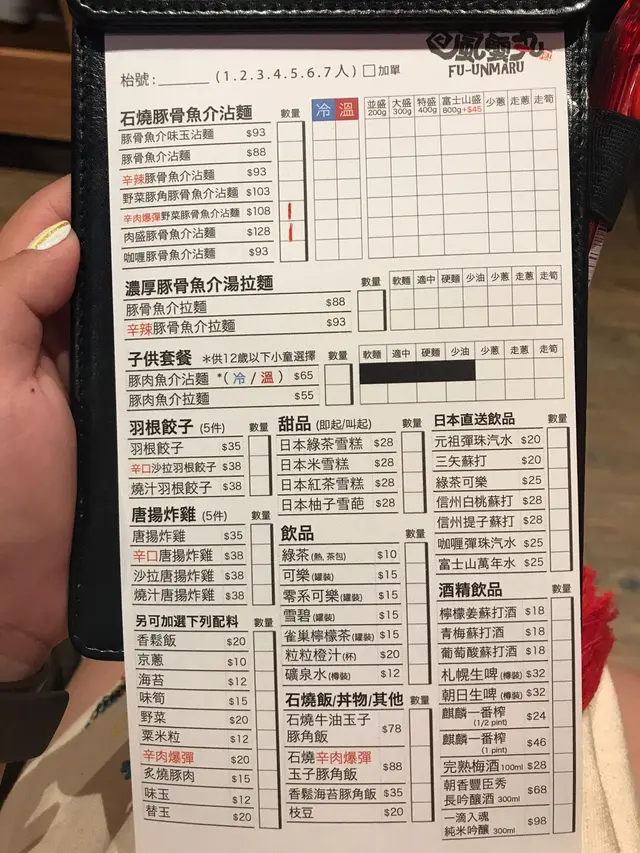 風雲丸
FU-UNMARU
枱號:______ (1.2.3.4.5.6.7人) □加單
石燒豚骨魚介沾麵 數量 冷 溫 並盛 200g 大盛 300g 特盛 400g 富士山盛 800g+$45 少蔥 走蔥 走筍
豚骨魚介味玉沾麵 $93
豚骨魚介沾麵 $88
辛辣豚骨魚介沾麵 $93
野菜豚角豚骨魚介沾麵 $103
辛肉爆彈野菜豚骨魚介沾麵 $108
肉盛豚骨魚介沾麵 $128
咖喱豚骨魚介沾麵 $93
濃厚豚骨魚介湯拉麵 數量 軟麵 適中 硬麵 少油 少蔥 走蔥 走筍
豚骨魚介拉麵 $88
辛辣豚骨魚介拉麵 $93
子供套餐 *供12歲以下小童選擇 數量 軟麵 適中 硬麵 少油 少蔥 走蔥 走筍
豚肉魚介沾麵 *(冷/溫) $65
豚肉魚介拉麵 $55
羽根餃子 (5件) 數量
羽根餃子 $35
辛口沙拉羽根餃子 $38
燒汁羽根餃子 $38
唐揚炸雞 (5件) 數量
唐揚炸雞 $35
辛口唐揚炸雞 $38
沙拉唐揚炸雞 $38
燒汁唐揚炸雞 $38
另可加選下列配料 數量
香鬆飯 $20
京蔥 $10
海苔 $12
味筍 $15
野菜 $20
粟米粒 $12
辛肉爆彈 $20
炙燒豚肉 $15
味玉 $12
替玉 $20
甜品 (即起/叫起) 數量
日本綠茶雪糕 $28
日本米雪糕 $28
日本紅茶雪糕 $28
日本柚子雪葩 $28
飲品 數量
綠茶(熱, 茶包) $10
可樂(罐裝) $15
零系可樂(罐裝) $15
雪碧(罐裝) $15
雀巢檸檬茶(罐裝) $15
粒粒橙汁(杯) $20
礦泉水(樽裝) $12
石燒飯/丼物/其他 數量
石燒牛油玉子
豚角飯 $78
石燒辛肉爆彈
玉子豚角飯 $88
香鬆海苔豚角飯 $35
枝豆 $20
日本直送飲品 數量
元祖彈珠汽水 $20
三矢蘇打 $20
綠茶可樂 $25
信州白桃蘇打 $28
信州提子蘇打 $28
咖喱彈珠汽水 $25
富士山萬年水 $25
酒精飲品 數量
檸檬姜蘇打酒 $18
青梅蘇打酒 $18
葡萄酸蘇打酒 $18
札幌生啤(樽裝) $32
朝日生啤(樽裝) $32
麒麟一番榨
(1/2 pint) $24
麒麟一番榨
(1 pint) $46
完熟梅酒100ml $28
朝香豐臣秀
長吟釀酒 300ml $68
一滴入魂
純米吟釀 300ml $98